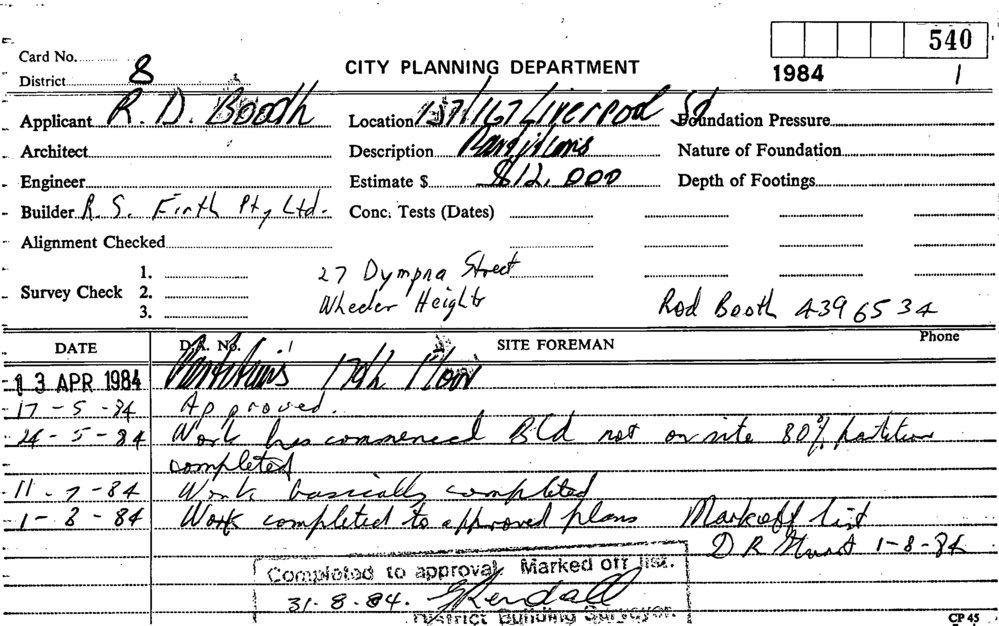 540
Card No.
District 8
CITY PLANNING DEPARTMENT
1984 1
Applicant R. D. Booth
Location 157/167 Liverpool St
Foundation Pressure
Architect
Description Partitions
Nature of Foundation
Engineer
Estimate $ $12,000
Depth of Footings
Builder R. S. Firth Pty Ltd.
Conc. Tests (Dates)
Alignment Checked
Survey Check 1.
2.
3.
27 Dympna Street
Wheeler Heights
Rod Booth 439 6534
DATE D.A. No. SITE FOREMAN Phone
13 APR 1984 Partitions 17th Floor
17-5-84 Approved.
24-5-84 Work has commenced Bld not on site 80% partition
completed
11-7-84 Work basically completed
1-8-84 Work completed to approved plans Markoff list
D R 1-8-84
Completed to approval, Marked off list.
31.8.84. Kendall
District Building Surveyor.
CP 45